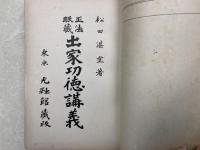 松田湛堂著
正法眼藏 出家功德講義
東京 光融館藏版